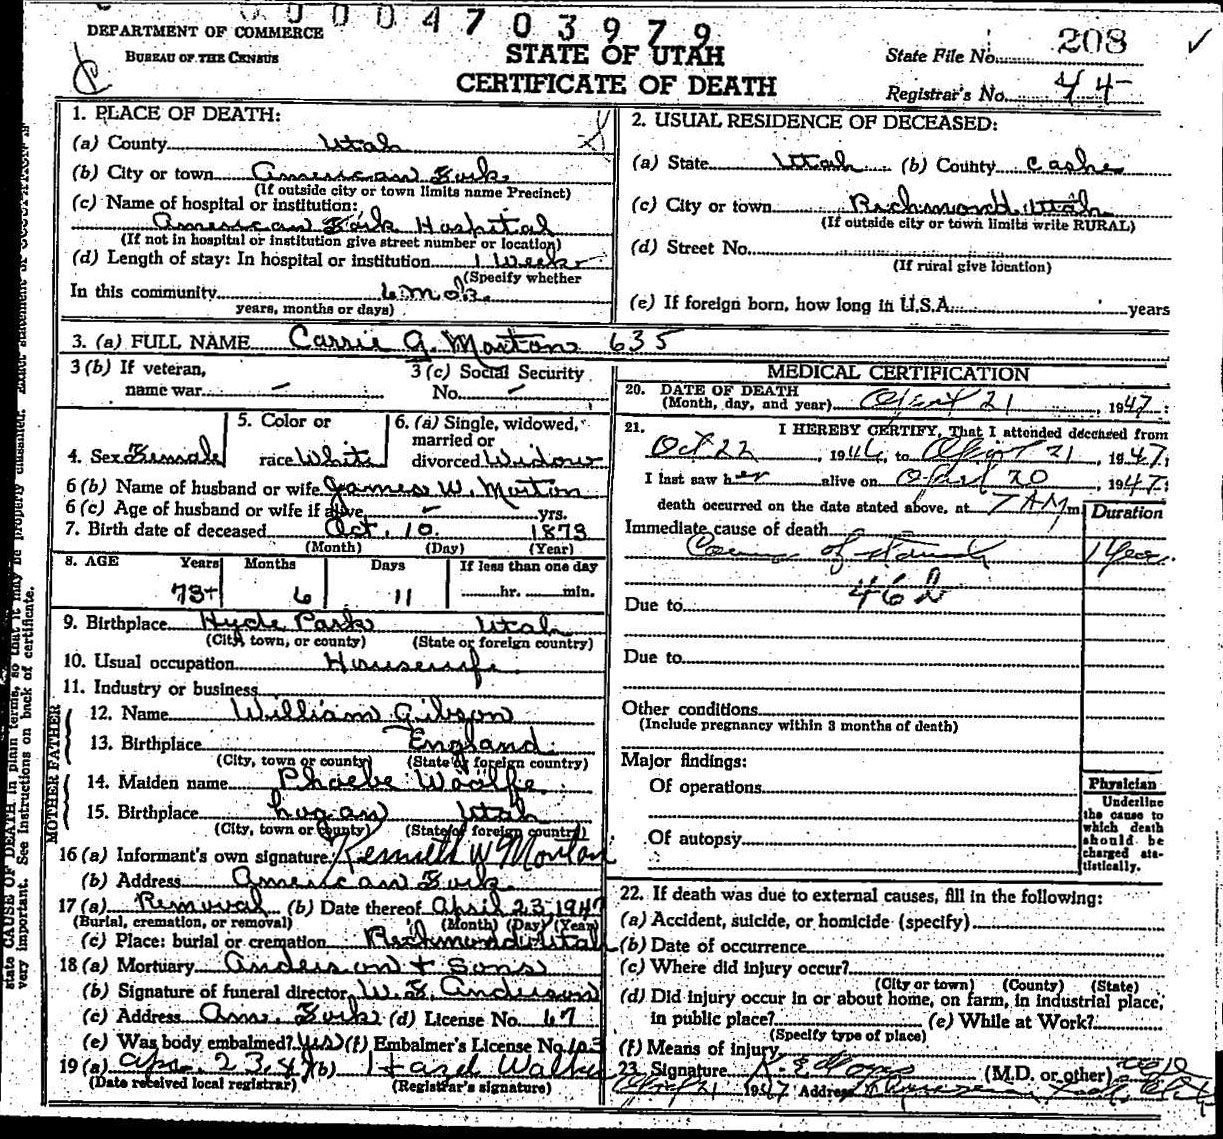 0004703979
DEPARTMENT OF COMMERCE
BUREAU OF THE CENSUS
STATE OF UTAH
CERTIFICATE OF DEATH
State File No. 208
Registrar's No. 44
1. PLACE OF DEATH:
(a) County Utah
(b) City or town American Fork
(If outside city or town limits name Precinct)
(c) Name of hospital or institution:
American Fork Hospital
(If not in hospital or institution give street number or location)
(d) Length of stay: In hospital or institution 1 Week
(Specify whether
In this community 6 mos.
years, months or days)
2. USUAL RESIDENCE OF DECEASED:
(a) State Utah (b) County Cashe
(c) City or town Richmond, Utah
(If outside city or town limits write RURAL)
(d) Street No.
(If rural give location)
(e) If foreign born, how long in U.S.A. years
3. (a) FULL NAME Carrie G. Morton 635
3 (b) If veteran, name war –
3 (c) Social Security No. –
4. Sex Female
5. Color or race White
6. (a) Single, widowed, married or divorced Widow
6 (b) Name of husband or wife James W. Morton
6 (c) Age of husband or wife if alive – yrs.
7. Birth date of deceased Oct. 10. 1873
(Month) (Day) (Year)
8. AGE Years Months Days If less than one day
73+ 6 11 hr. min.
9. Birthplace Hyde Park Utah
(City, town, or county) (State or foreign country)
10. Usual occupation Housewife
11. Industry or business
FATHER
12. Name William Gibson
13. Birthplace England
(City, town or county) (State or foreign country)
MOTHER
14. Maiden name Phoebe Woolfe
15. Birthplace Logan Utah
(City, town or county) (State or foreign country)
16 (a) Informant's own signature Kenneth W Morton
(b) Address American Fork
17 (a) Removal (b) Date thereof April 23, 1947
(Burial, cremation, or removal) (Month) (Day) (Year)
(c) Place: burial or cremation Richmond Utah
18 (a) Mortuary Anderson + Sons
(b) Signature of funeral director W. F. Anderson
(c) Address Am. Fork (d) License No. 67
(e) Was body embalmed? yes (f) Embalmer's License No. 103
19 (a) Apr. 23, 47 (b) Hazel Walker
(Date received local registrar) (Registrar's signature)
MEDICAL CERTIFICATION
20. DATE OF DEATH
(Month, day, and year) April 21, 1947
21. I HEREBY CERTIFY, That I attended deceased from
Oct 22, 1946, to April 21, 1947
I last saw her alive on April 20, 1947
death occurred on the date stated above, at 7 AM m.
Duration
Immediate cause of death
of 1 Year
46b
Due to
Due to
Other conditions
(Include pregnancy within 3 months of death)
Major findings:
Of operations
Of autopsy
Physician
Underline
the cause to
which death
should be
charged sta-
tistically.
22. If death was due to external causes, fill in the following:
(a) Accident, suicide, or homicide (specify)
(b) Date of occurrence
(c) Where did injury occur?
(City or town) (County) (State)
(d) Did injury occur in or about home, on farm, in industrial place,
in public place? (e) While at Work?
(Specify type of place)
(f) Means of injury
23. Signature (M.D. or other)
April 21 1947 Address
state CAUSE OF DEATH in plain terms, so that it may be properly classified.
very important. See instructions on back of certificate.